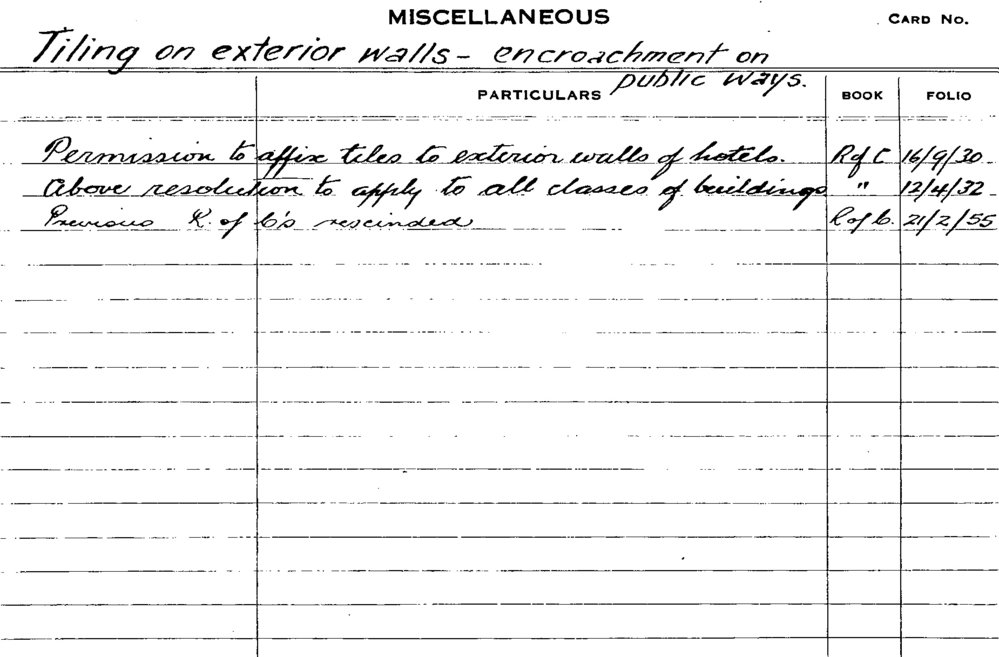 MISCELLANEOUS CARD NO.
Tiling on exterior walls – encroachment on
public ways.
PARTICULARS BOOK FOLIO
Permission to affix tiles to exterior walls of hotels. R of C 16/9/30
Above resolution to apply to all classes of buildings " 12/4/32
Previous R. of C's rescinded R of C. 21/2/55